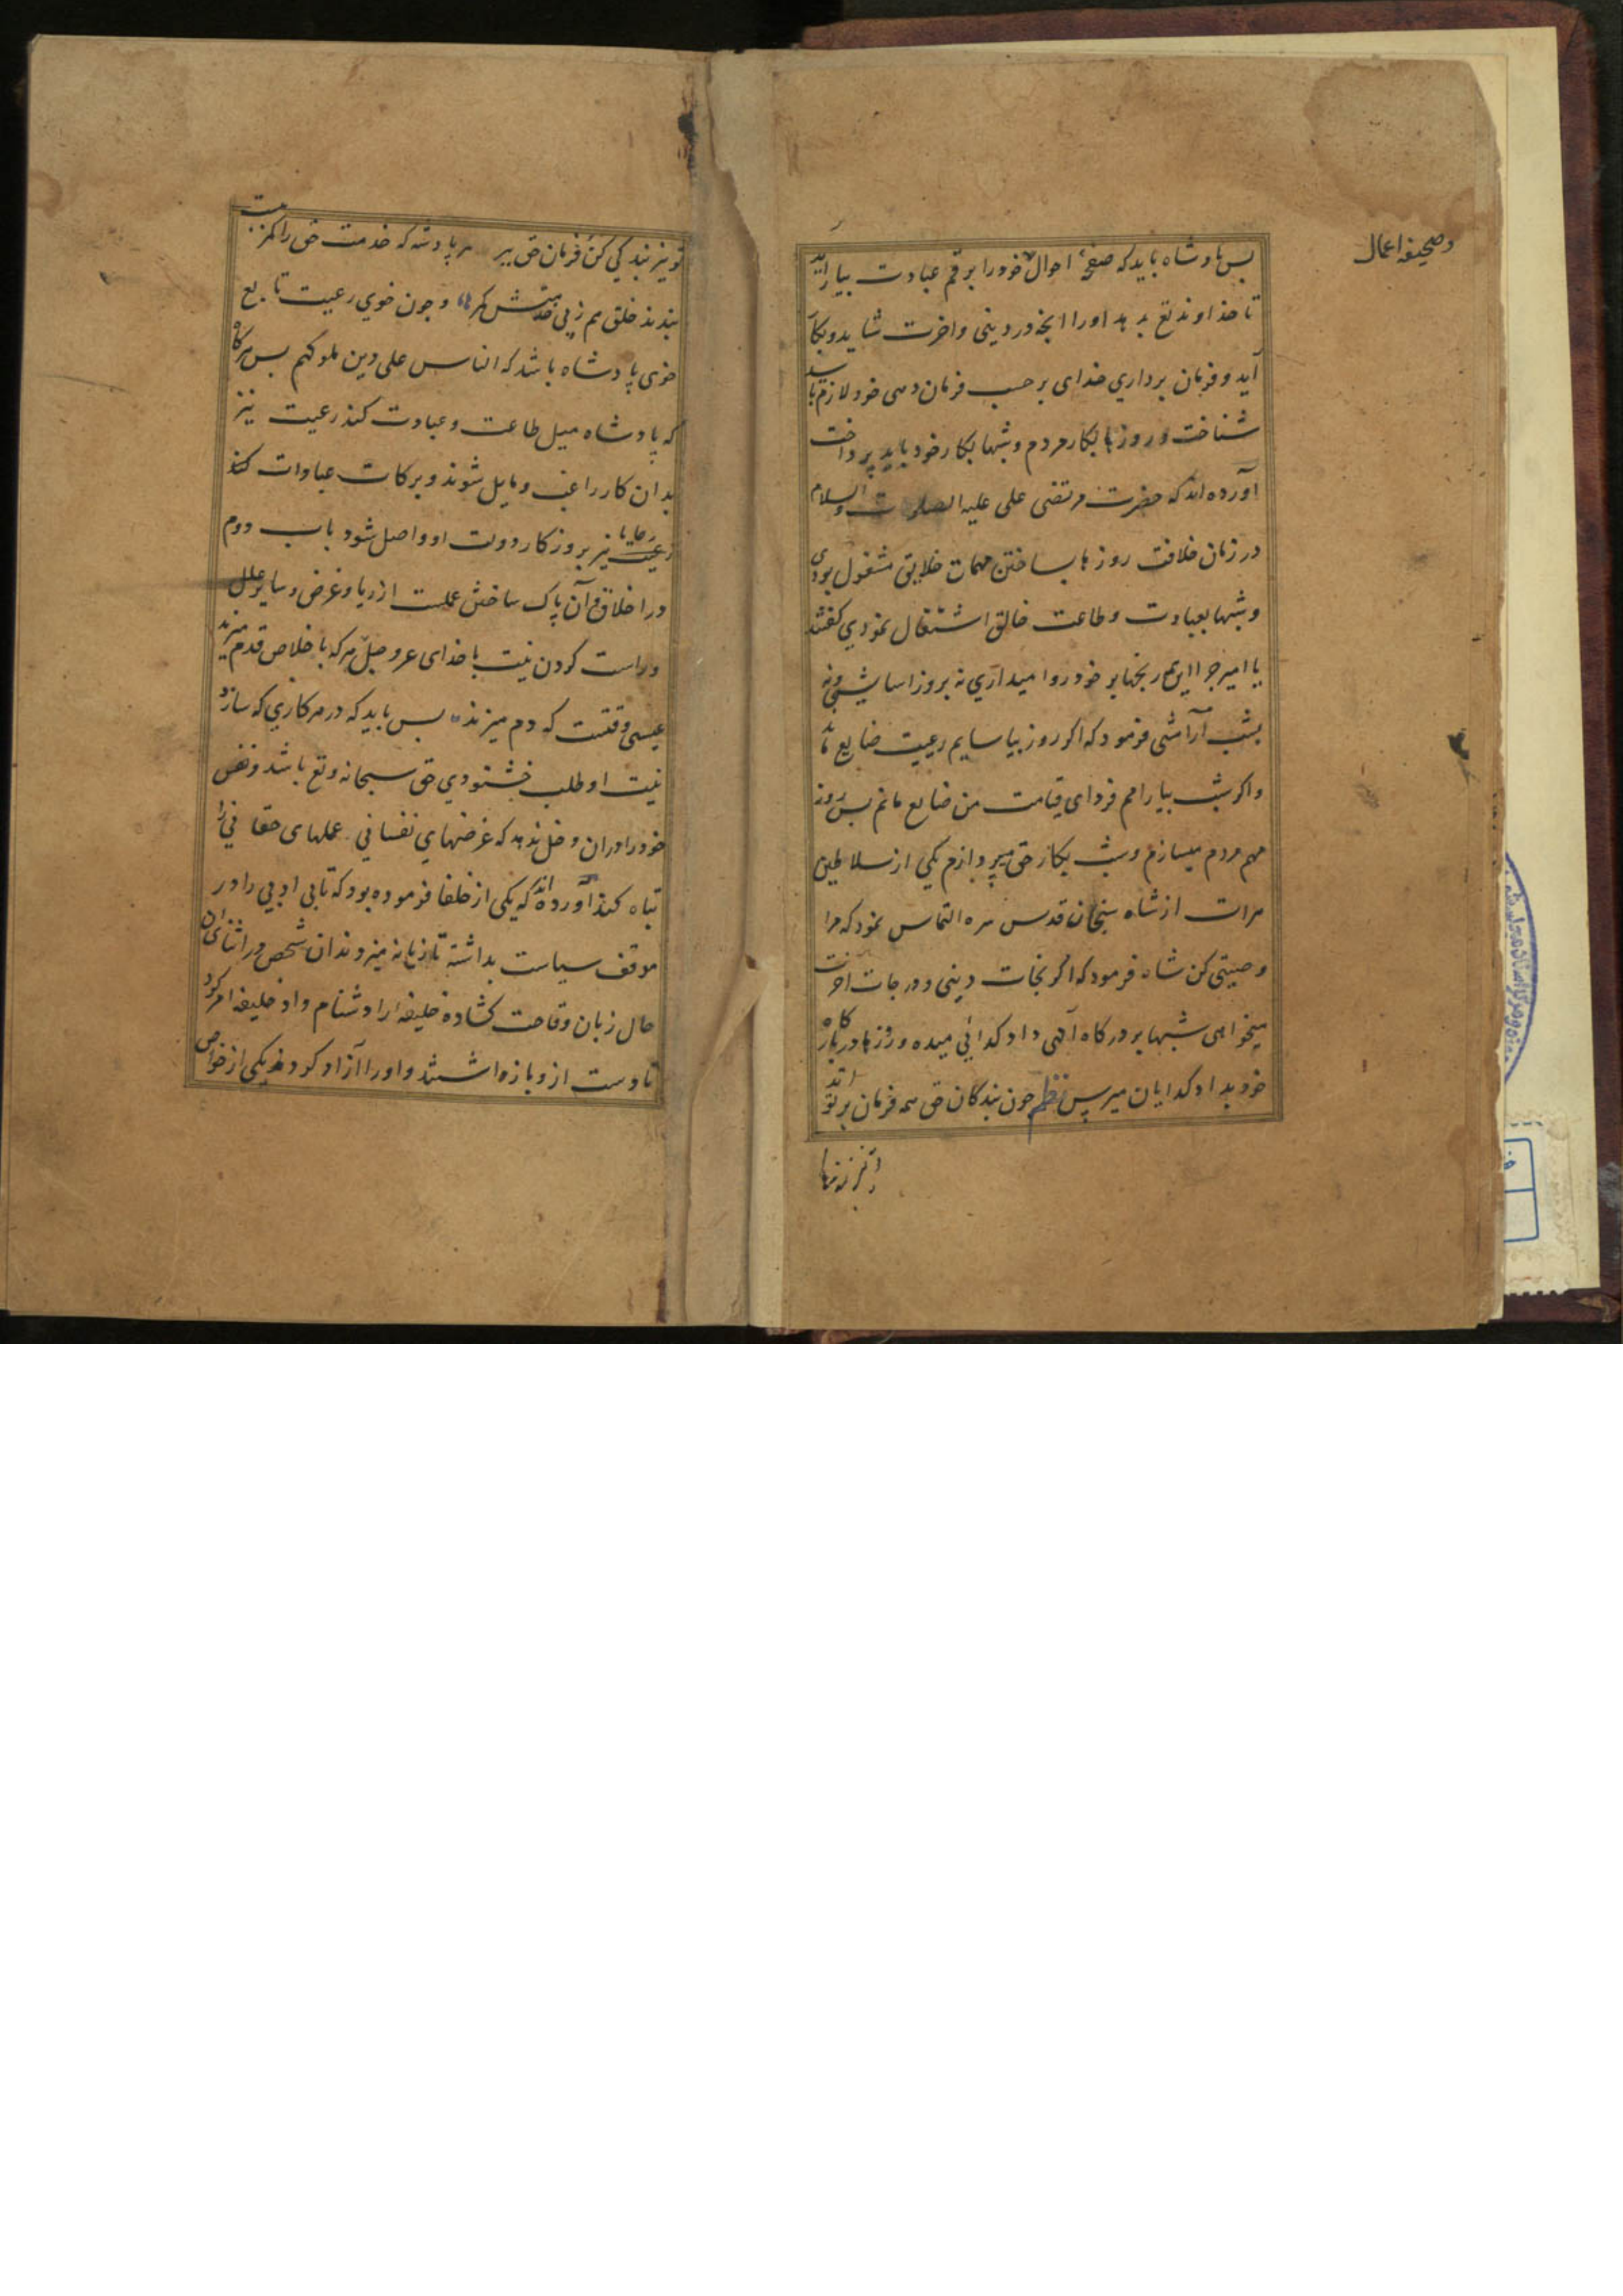 و صحیفه اعمال
پس پادشاه باید که صفحهٔ احوال خود را برقم عبادت بیاراید
تا خداوند تع بدهد او را انچه در دینی و اخرت شاید و بکار
آید و فرمان برداری خدای بر حسب فرمان دهی خود لازم باید
شناخت و روزها بکار مردم و شبها بکار خود باید پرداخت
آورده اند که حضرت مرتضی علی علیه الصلوت و السلام
در زمان خلافت روزها بساختن مهمات خلایق مشغول بودی
و شبها بعبادت و طاعت خالق اشتغال نمودی کفتند
یا امیر چرا این همه رنجها بر خود روا میداری نه بروز اسایشی و نه
بشب آرامشی فرمود که اکر روز بیاسایم رعیت ضایع ماند
و اکر شب بیارامم فردای قیامت من ضایع مانم پس روز
مهم مردم میسازم و شب بکار حق میپردازم یکی از سلاطین
هرات از شاه سنجان قدس سره التماس نمود که مرا
وصیتی کن شاه فرمود که اکر نجات دینی و درجات اخرت
میخواهی شبها بر درکاه آلهی داد کدائی میده و روزها در بارکاه
خود بداد کدایان میرس نظم چون بندکان حق همه فرمان بر تو اند
تو نیز بندکی کن و فرمان حق ببر هر پادشه که خدمت حق را کمر بست
بندند خلق هم ز پی خدمتش کمر و چون خوی رعیت تابع
خوی پادشاه باشد که الناس علی دین ملوکهم پس هرکاه
که پادشاه میل طاعت و عبادت کند رعیت نیز
بدان کار راغب و مایل شوند و برکات عبادات کند
رعیت رعایا نیز بروزکار دولت او واصل شود باب دوم
در اخلاق و آن پاک ساختن عملست از ریا و غرض و سایر علل
و راست کردن نیت با خدای عز و جل هر که باخلاص قدم میزند
عیسی وقتست که دم میزند پس باید که در هر کاری که سازد
نیت او طلب خشنودی حق سبحانه و تع باشد و نفس
خود را دران دخل ندهد که غرضهای نفسانی عملهای حقانی را
تباه کند آورده اند که یکی از خلفا فرموده بود که تا بی ادبی را در
موقف سیاست بداشته تازیانه میزدند ان شخص در اثنای ان
حال زبان وقاحت کشاده خلیفه را دشنام داد خلیفه امر کرد
تا دست از و بازداشتند و او را آزاد کردند یکی از خواص